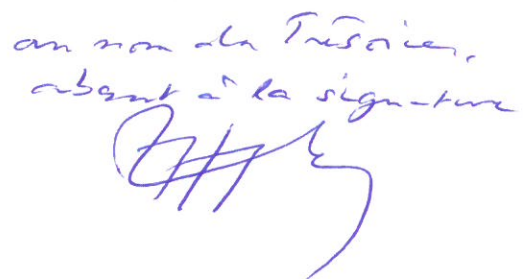 au nom du Trésorier,
absent à la signature